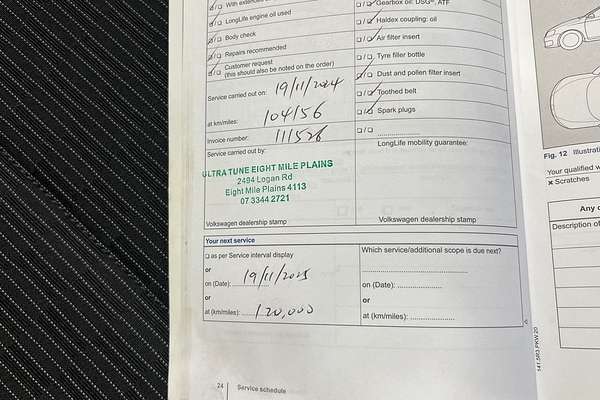 With exten
Gearbox oil: DSG®, ATF
LongLife engine oil used
Haldex coupling: oil
Body check
Air filter insert
Repairs recommended
Tyre filler bottle
Customer request
(this should also be noted on the order)
Dust and pollen filter insert
Service carried out on: 19/11/2024
Toothed belt
at km/miles: 104156
Spark plugs
Invoice number: 111526
Service carried out by:
LongLife mobility guarantee:
ULTRA TUNE EIGHT MILE PLAINS
2494 Logan Rd
Eight Mile Plains 4113
07 3344 2721
Volkswagen dealership stamp
Volkswagen dealership stamp
Your next service
as per Service interval display
Which service/additional scope is due next?
or
on (Date): 19/11/2025
on (Date):
or
or
at (km/miles): 120,000
at (km/miles):
24 Service schedule
141.5R3.PKW.20
Fig. 12 Illustrati
Your qualified w
× Scratches
Any
Description of